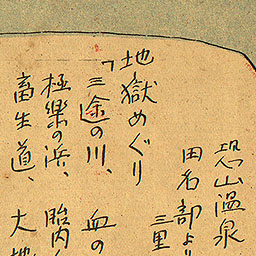 恐山温泉
田名部より
三里
地獄めぐり
「三途の川、血の
極樂の浜、胎内
畜生道、大地